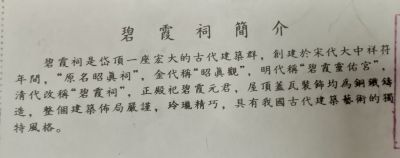 碧霞祠簡介
碧霞祠是岱頂一座宏大的古代建築群，創建於宋代大中祥符
年間，“原名昭眞祠”，金代稱“昭眞觀”，明代稱“碧霞靈佑宮”，
清代改稱“碧霞祠”，正殿祀碧霞元君，屋頂蓋瓦裝飾均為銅鐵鑄
造，整個建築佈局嚴謹，玲瓏精巧，具有我國古代建築藝術的獨
特風格。